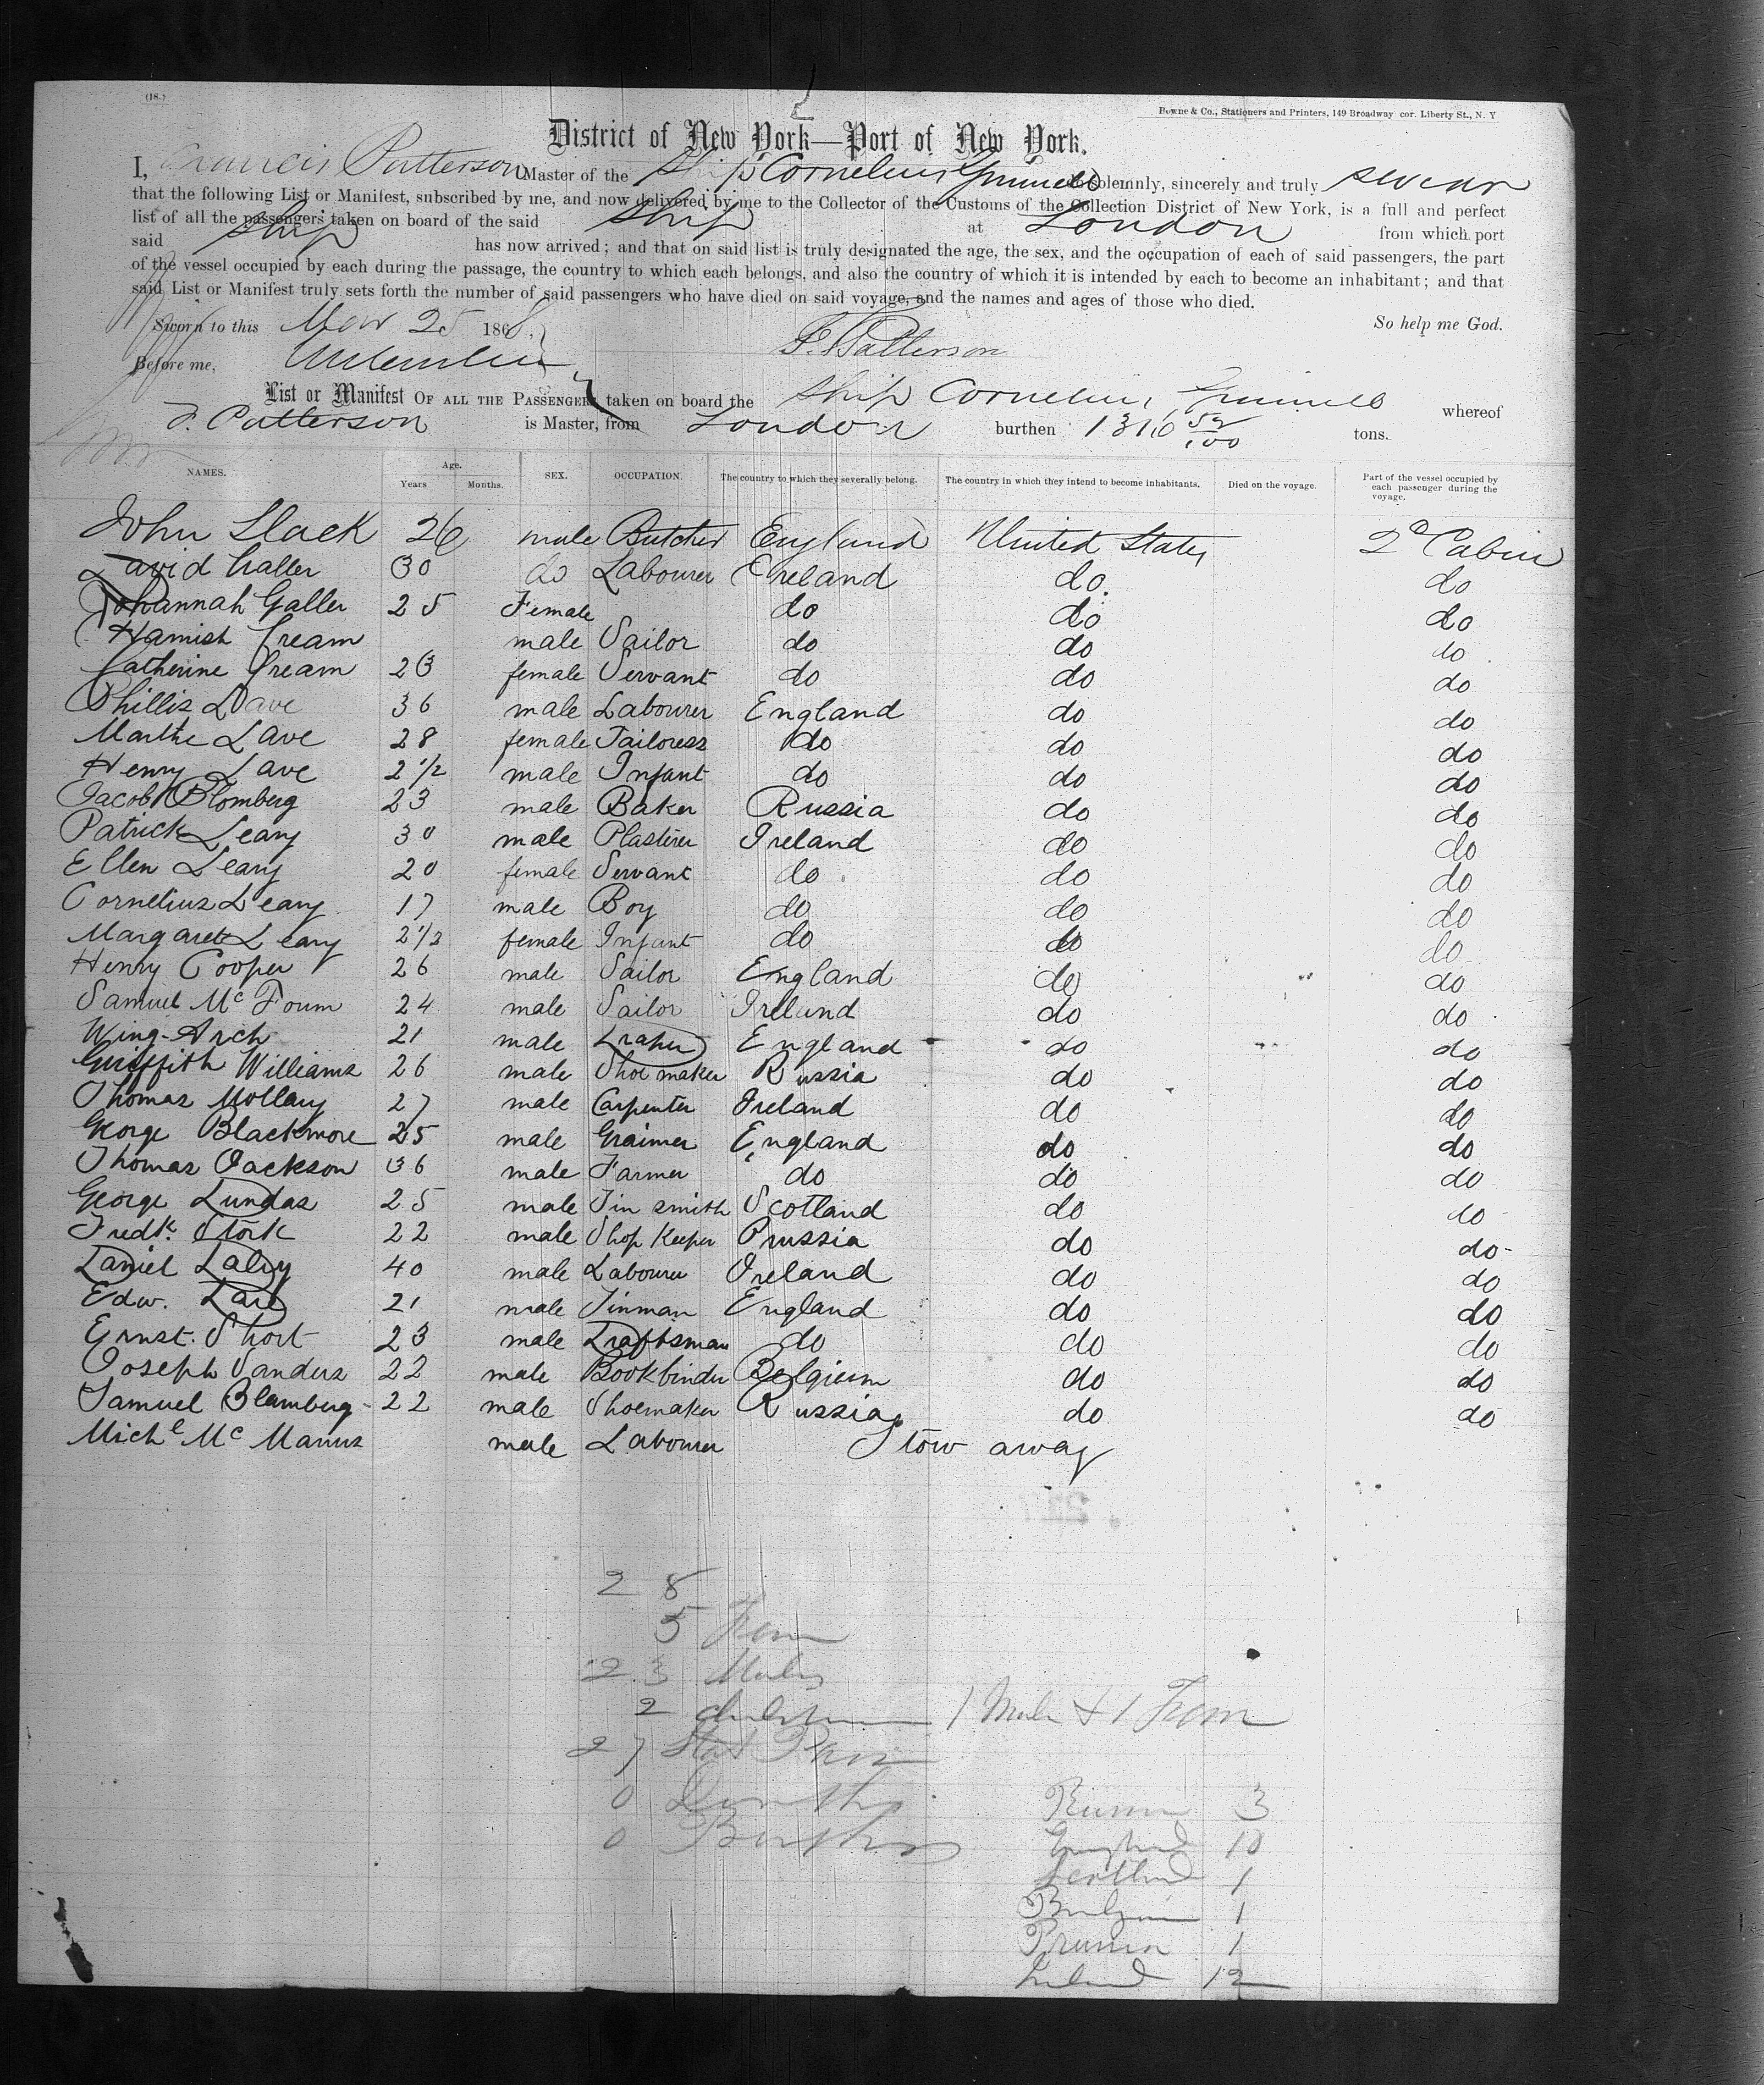 (18.)
Bowne & Co., Stationers and Printers, 149 Broadway cor. Liberty St., N. Y
District of New York—Port of New York.
I, Francis Patterson Master of the Ship Cornelius Grinnell do solemnly, sincerely and truly swear
that the following List or Manifest, subscribed by me, and now delivered by me to the Collector of the Customs of the Collection District of New York, is a full and perfect
list of all the passengers taken on board of the said Ship at London from which port
said Ship has now arrived; and that on said list is truly designated the age, the sex, and the occupation of each of said passengers, the part
of the vessel occupied by each during the passage, the country to which each belongs, and also the country of which it is intended by each to become an inhabitant; and that
said List or Manifest truly sets forth the number of said passengers who have died on said voyage, and the names and ages of those who died.
Sworn to this Nov 25 1868. So help me God.
Before me, F. Patterson
List or Manifest OF ALL THE PASSENGERS taken on board the Ship Cornelius Grinnell whereof
F. Patterson is Master, from London burthen 1316 52/100 tons.
NAMES. Age. Years Months. SEX. OCCUPATION. The country to which they severally belong. The country in which they intend to become inhabitants. Died on the voyage. Part of the vessel occupied by each passenger during the voyage.
John Slack 26 male Butcher England United States 2d Cabin
David Galler 30 do Labourer Ireland do. do
Johannah Galler 25 Female do do do
Hamish Cream male Sailor do do do
Catherine Cream 23 female Servant do do do
Phillis Dave 36 male Labourer England do do
Marthe Dave 28 female Tailoress do do do
Henry Dave 2 1/2 male Infant do do do
Jacob Blomberg 23 male Baker Russia do do
Patrick Leary 30 male Plasterer Ireland do do
Ellen Leary 20 female Servant do do do
Cornelius Leary 17 male Boy do do do
Margaret Leary 2 1/2 female Infant do do do
Henry Cooper 26 male Sailor England do do
Samuel Mc Foum 24 male Sailor Ireland do do
Wing-Arch 21 male Draper England do do
Griffith Williams 26 male Shoe maker Russia do do
Thomas Mollay 27 male Carpenter Ireland do do
George Blackmore 25 male Grainer England do do
Thomas Jackson 36 male Farmer do do do
George Dundas 25 male Tin smith Scotland do do
Fredk. Stork 22 male Shop Keeper Prussia do do
Daniel Daly 40 male Labourer Ireland do do
Edw. Dare 21 male Tinman England do do
Ernst. Short 23 male Draftsman do do do
Joseph Sanders 22 male Bookbinder Belgium do do
Samuel Blamberg 22 male Shoemaker Russia do do
Michl Mc Manus male Labourer Stow away
28
5 Fem
23 Males
2 children 1 Male & 1 Fem
27
0 Deaths
0 Births
Russia 3
England 10
Scotland 1
Belgium 1
Prussia 1
Ireland 12